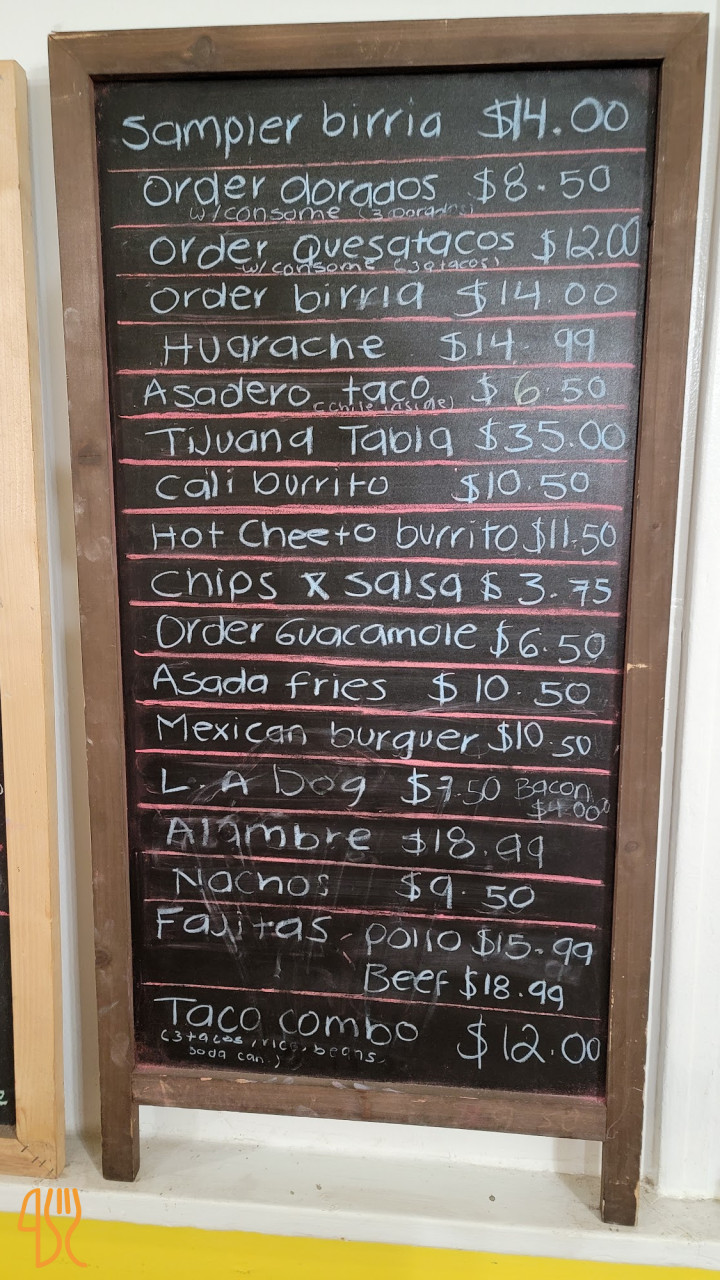 Sampler birria $14.00
Order dorados $8.50
w/consome (3 Dorados)
Order Quesatacos $12.00
w/consome (3 qtacos)
Order birria $14.00
Huarache $14.99
Asadero taco $6.50
(chile inside)
Tijuana Tabla $35.00
Cali burrito $10.50
Hot Cheeto burrito $11.50
Chips X salsa $3.75
Order Guacamole $6.50
Asada fries $10.50
Mexican burguer $10.50
L.A Dog $7.50 Bacon
$4.00
Alambre $18.99
Nachos $9.50
Fajitas - pollo $15.99
Beef $18.99
Taco combo $12.00
(3 tacos, rice, beans,
soda can.)